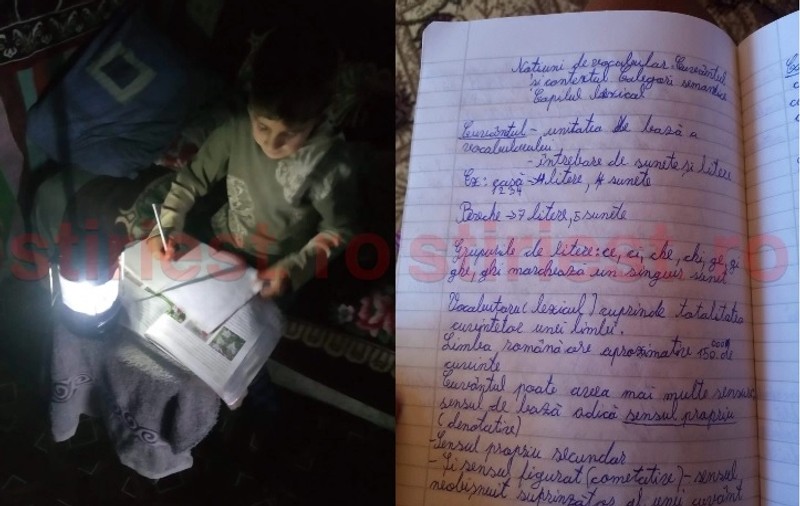 stiriest.ro stiriest.ro
Notiuni de vocabular. Cuvântul
si contextul Categori semantice
Câpilul lexical
Cuvântul - unitatea de bază a
vocabularului
- întrebare de sunete si litere
Ex: casă → 4 litere, 4 sunete
1234
Pereche → 7 litere, 5 sunete
Grupurile de litere: ce, ci, che, chi, ge, gi
ghe, ghi marchează un singur sunet
Vocabularu (lexicul) cuprinde totalitatea
cuvintelor unei limbi.
Limba română are aproximativ 150.000 de
cuvinte
Cuvântul poate avea mai multe sensuri
sensul de bază adică sensul propriu
(denotative)
-Sensul propriu secundar
-Si sensul figurat (conotative) - sensul
neobisnuit surprinzător al unei cuvânt